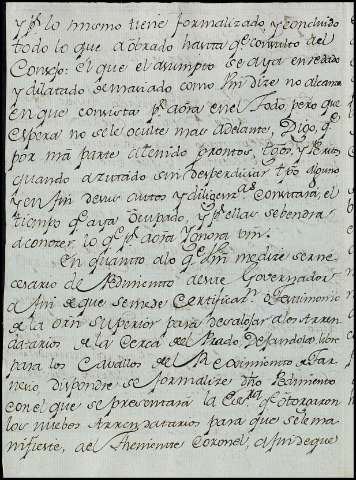 y pr. lo mismo tiene formalizado y concluido
todo lo que a obrado hasta qe. consulto del
Consejo: el que el asumpto se aya enredado
y dilatado demasiado como Vm dize no alcanza
en que consista pr. aora en el todo, pero que
espera no se le oculte mas adelante, Digo, qe.
por mi parte a tenido prontos,
quando a rutado sin desperdiciar tpo. alguno
y en fin de sus autos y diligenzas. constara, el
tiempo qe. aya ocupado, y pr. ellas se bendra
a conozer, lo qe. pr. aora Ygnora Vm.
En quanto a lo qe. Vm me dize ser ne
cesario de Pedimento de ese Governador
a fin de que se mede Certificarn. o testimonio
de la orn superior para desalojar a los Arren
datarios de la Cerca del Prado, Dejandola libre
para los Cavallos del Recivimiento de Gar
nero, dispondre se formalize dho Pedimento
con el que se presentará la Esca. qe. otorgaron
los nuebos Arrendatarios para que se le ma
nifieste, a el Theniente Coronel, a fin de que